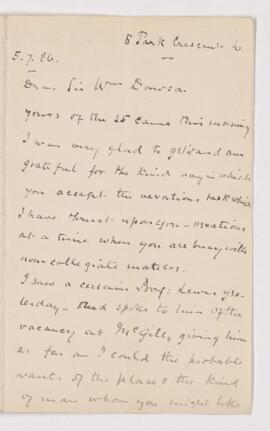 8 Park Crescent W.
5.7.86.
Dear Sir Wm Dawson
Yours of the 25 came this morning
I was very glad to get & am
grateful for the kind way in which
you accept the vexatious task which
I have thrust upon you — vexatious
at a time when you are busy with
non collegiate matters.
I saw a certain Prof: Lewis yes-
terday. And spoke to him of the
vacancy at McGill, giving him
as far as I could the probable
wants of the place & the kind
of man whom you might like